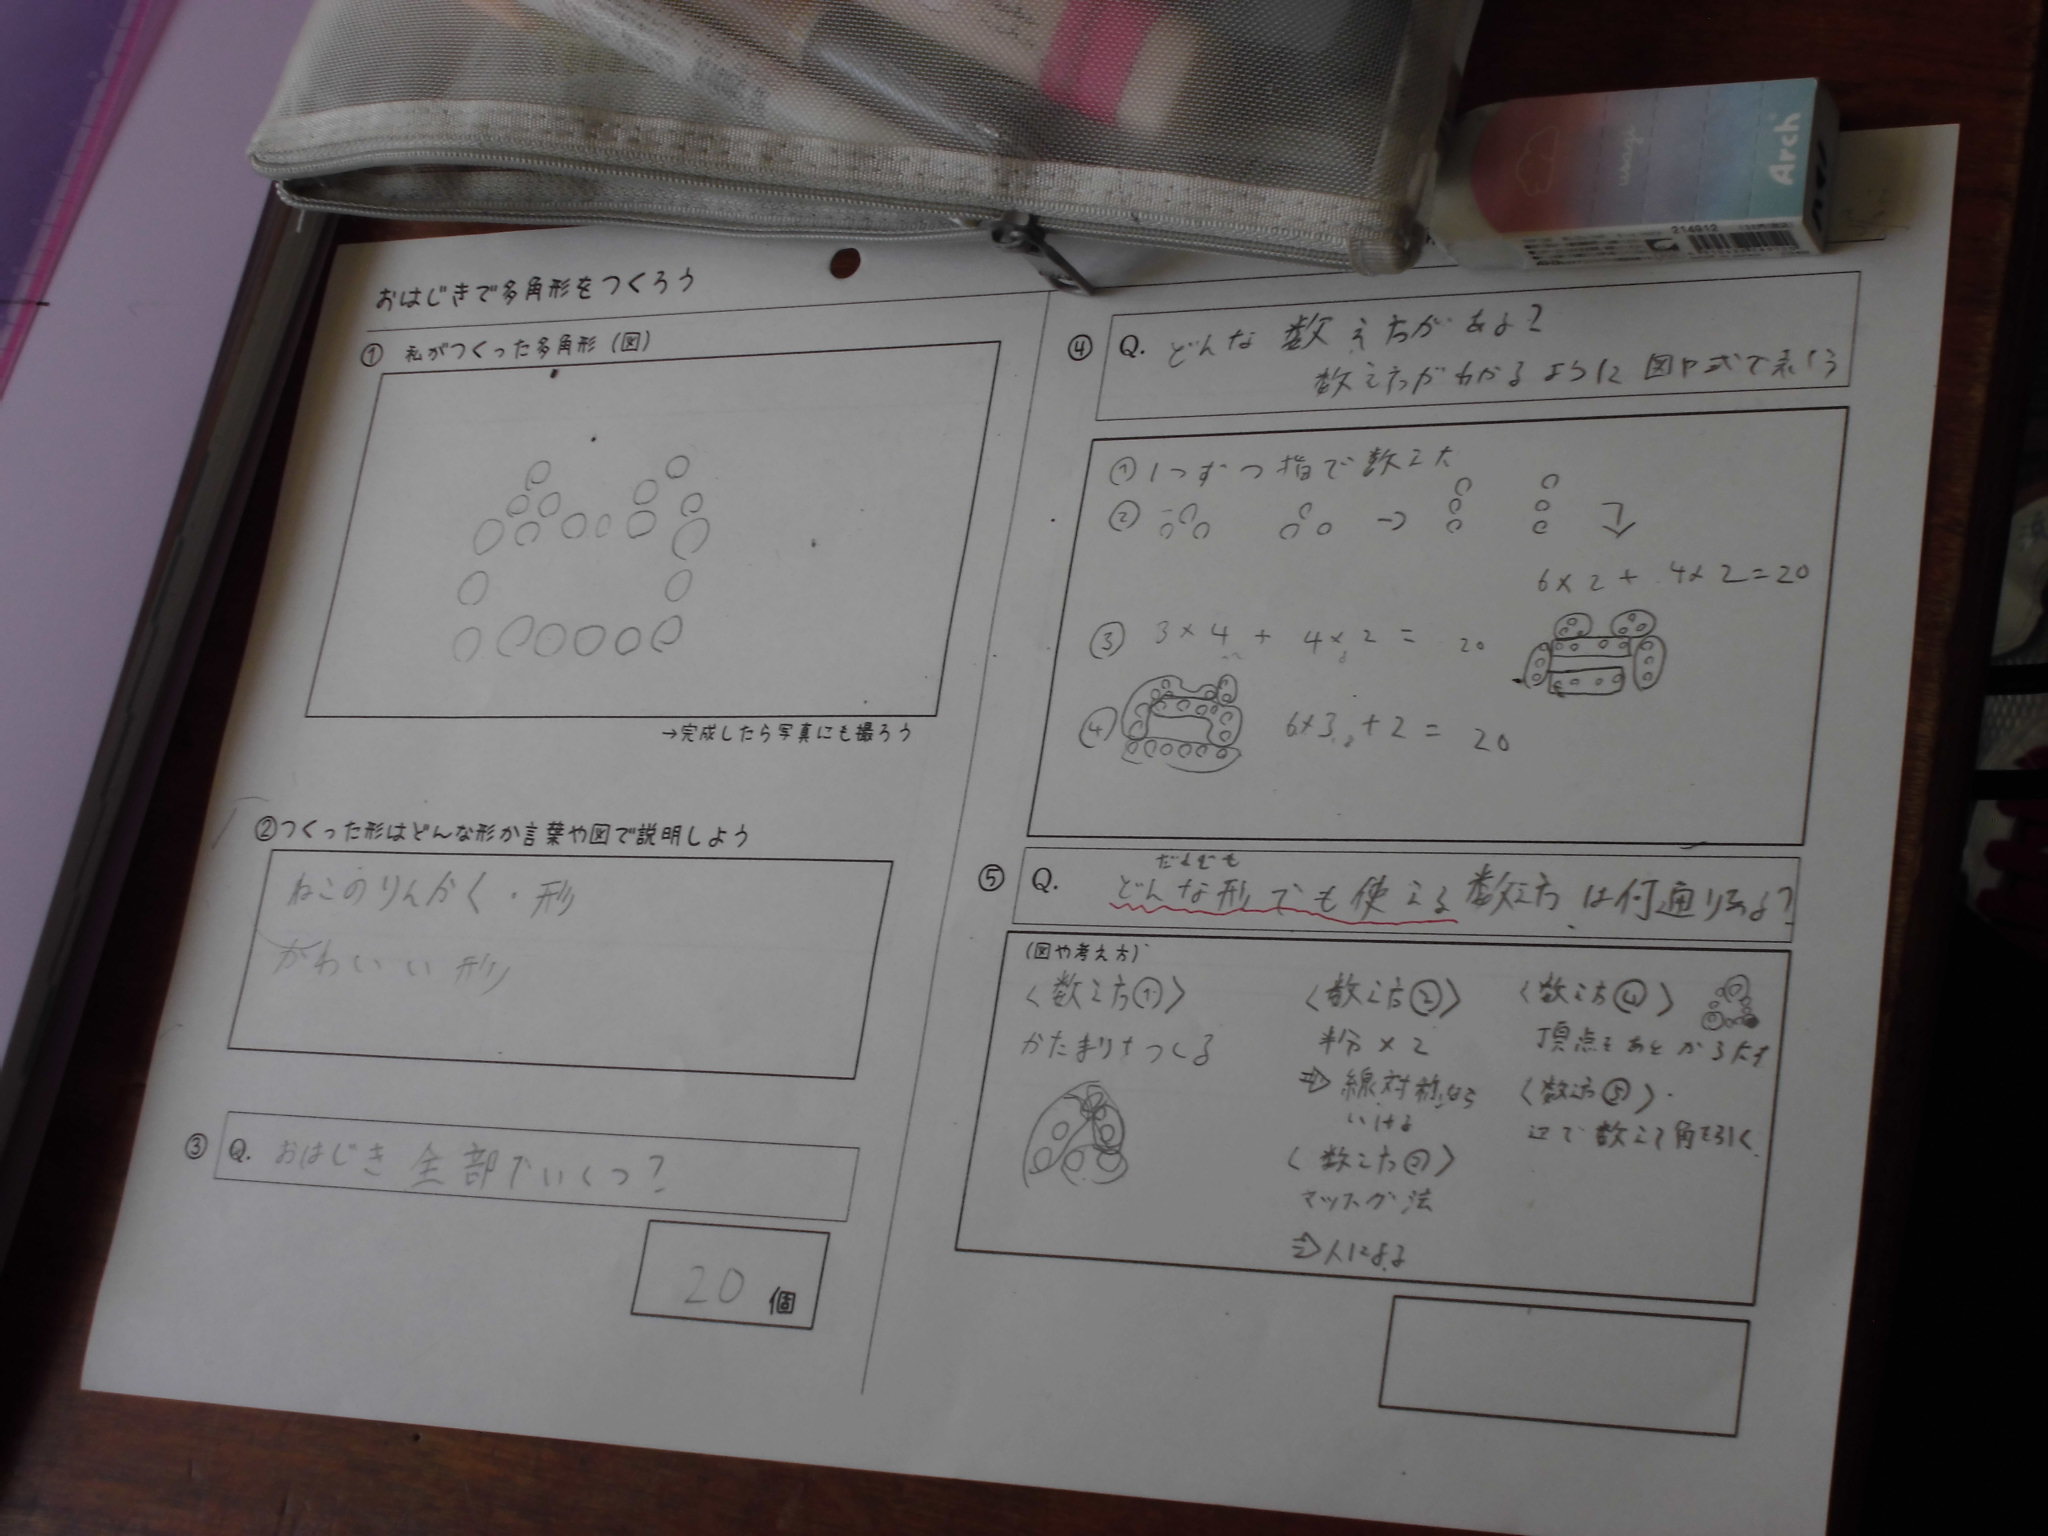 おはじきで多角形をつくろう
① 私がつくった多角形(図)
→完成したら写真にも撮ろう
②つくった形はどんな形か言葉や図で説明しよう
ねこのりんかく・形
かわいい形
③ Q. おはじき全部でいくつ?
20 個
④ Q. どんな数え方がある?
数え方がわかるように図や式で表そう
① 1つずつ指で数えた
② → 
6×2+4×2=20
③ 3×4+4×2=20
④ 6×3+2=20
⑤ Q. どんな形でも使える数え方は何通りある?
(図や考え方)
〈数え方①〉
かたまりをつくる
〈数え方②〉
半分×2
⇒線対称なら
いける
〈数え方③〉
マッスグ法
⇒人による
〈数え方④〉
頂点をあとからたす
〈数え方⑤〉
辺で数えて角を引く
Arch
usagi
214912